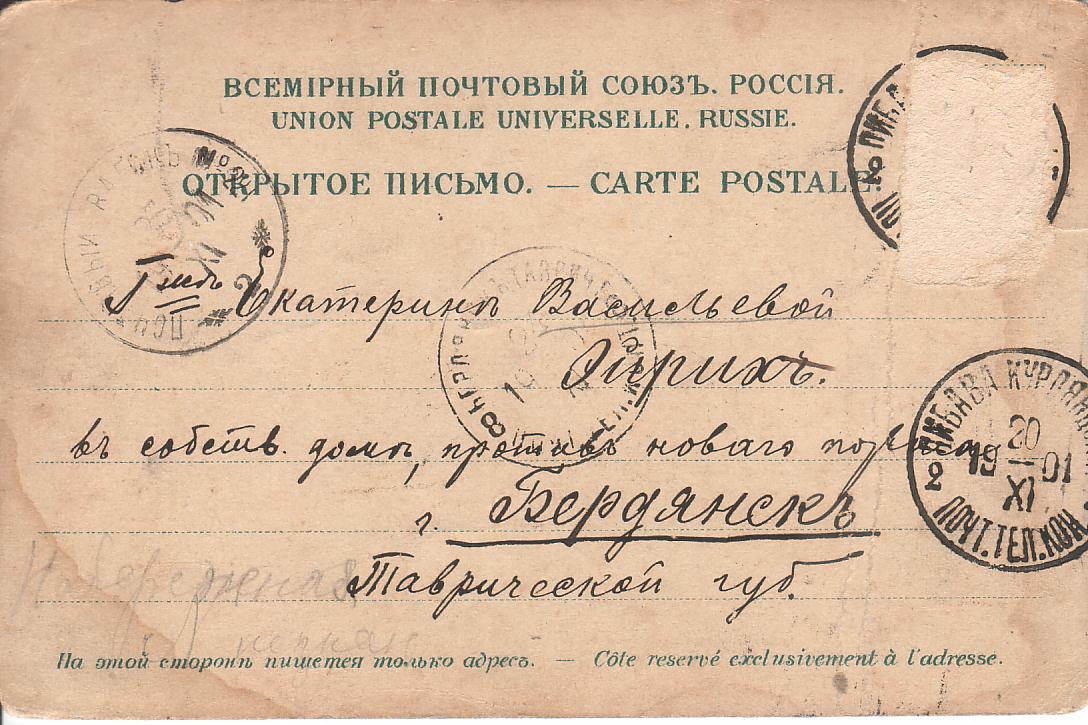 ВСЕМІРНЫЙ ПОЧТОВЫЙ СОЮЗЪ. РОССІЯ.
UNION POSTALE UNIVERSELLE. RUSSIE.
ОТКРЫТОЕ ПИСЬМО. — CARTE POSTALE.
Екатеринѣ Васильевой
Эирихъ.
въ собств. домѣ, противъ новаго
г. Бердянскъ
Таврической губ.
Набережная
На этой сторонѣ пишется только адресъ. — Côte reservé exclusivement à l'adresse.
ЛИБАВА КУРЛЯНД
20
19 — 01
XI
2 ПОЧТ. ТЕЛ. КОН